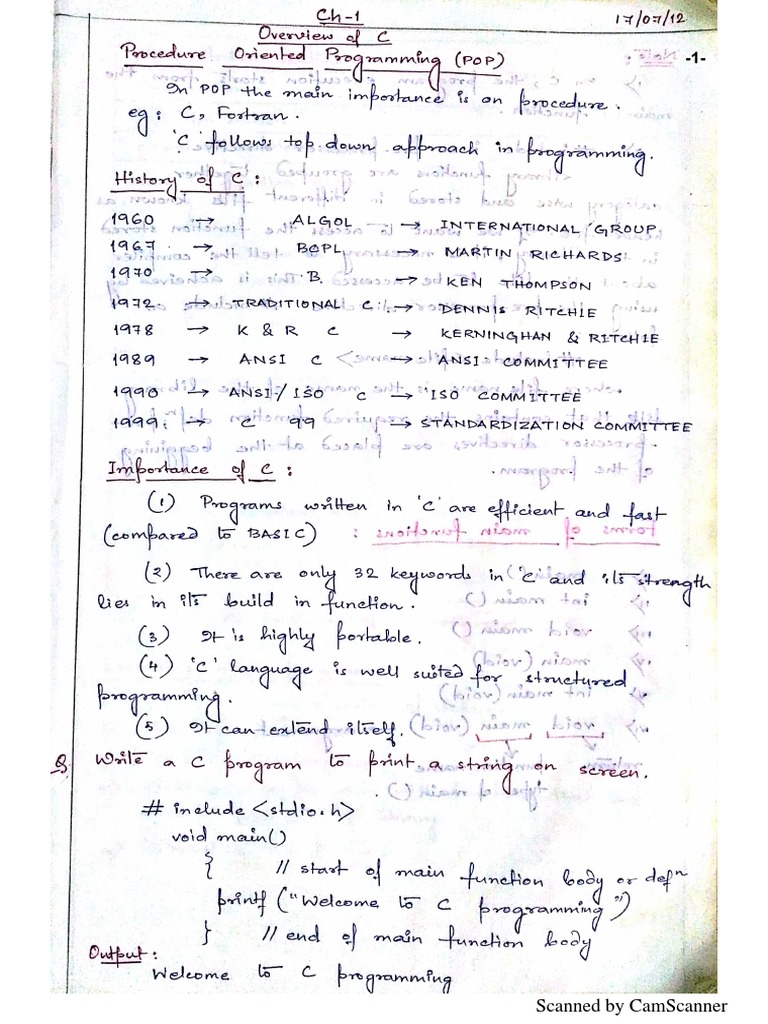 Ch-1
17/07/12
Overview of C
Procedure Oriented Programming (POP)
-1-
In POP the main importance is on procedure.
eg: C, Fortran.
'C' follows top down approach in programming.
History of C:
1960 → ALGOL → INTERNATIONAL GROUP
1967 → BCPL → MARTIN RICHARDS
1970 → B. → KEN THOMPSON
1972 → TRADITIONAL C → DENNIS RITCHIE
1978 → K & R C → KERNINGHAN & RITCHIE
1989 → ANSI C → ANSI COMMITTEE
1990 → ANSI/ISO C → ISO COMMITTEE
1999 → C 99 → STANDARDIZATION COMMITTEE
Importance of C:
(1) Programs written in 'C' are efficient and fast
(compared to BASIC)
(2) There are only 32 keywords in 'C' and its strength
lies in its build in function.
(3) It is highly portable.
(4) 'C' language is well suited for structured
programming.
(5) It can extend itself.
Q. Write a C program to print a string on screen.
# include <stdio.h>
void main()
{ // start of main function body or defn
printf ("Welcome to C programming")
} // end of main function body
Output:
Welcome to C programming
Scanned by CamScanner